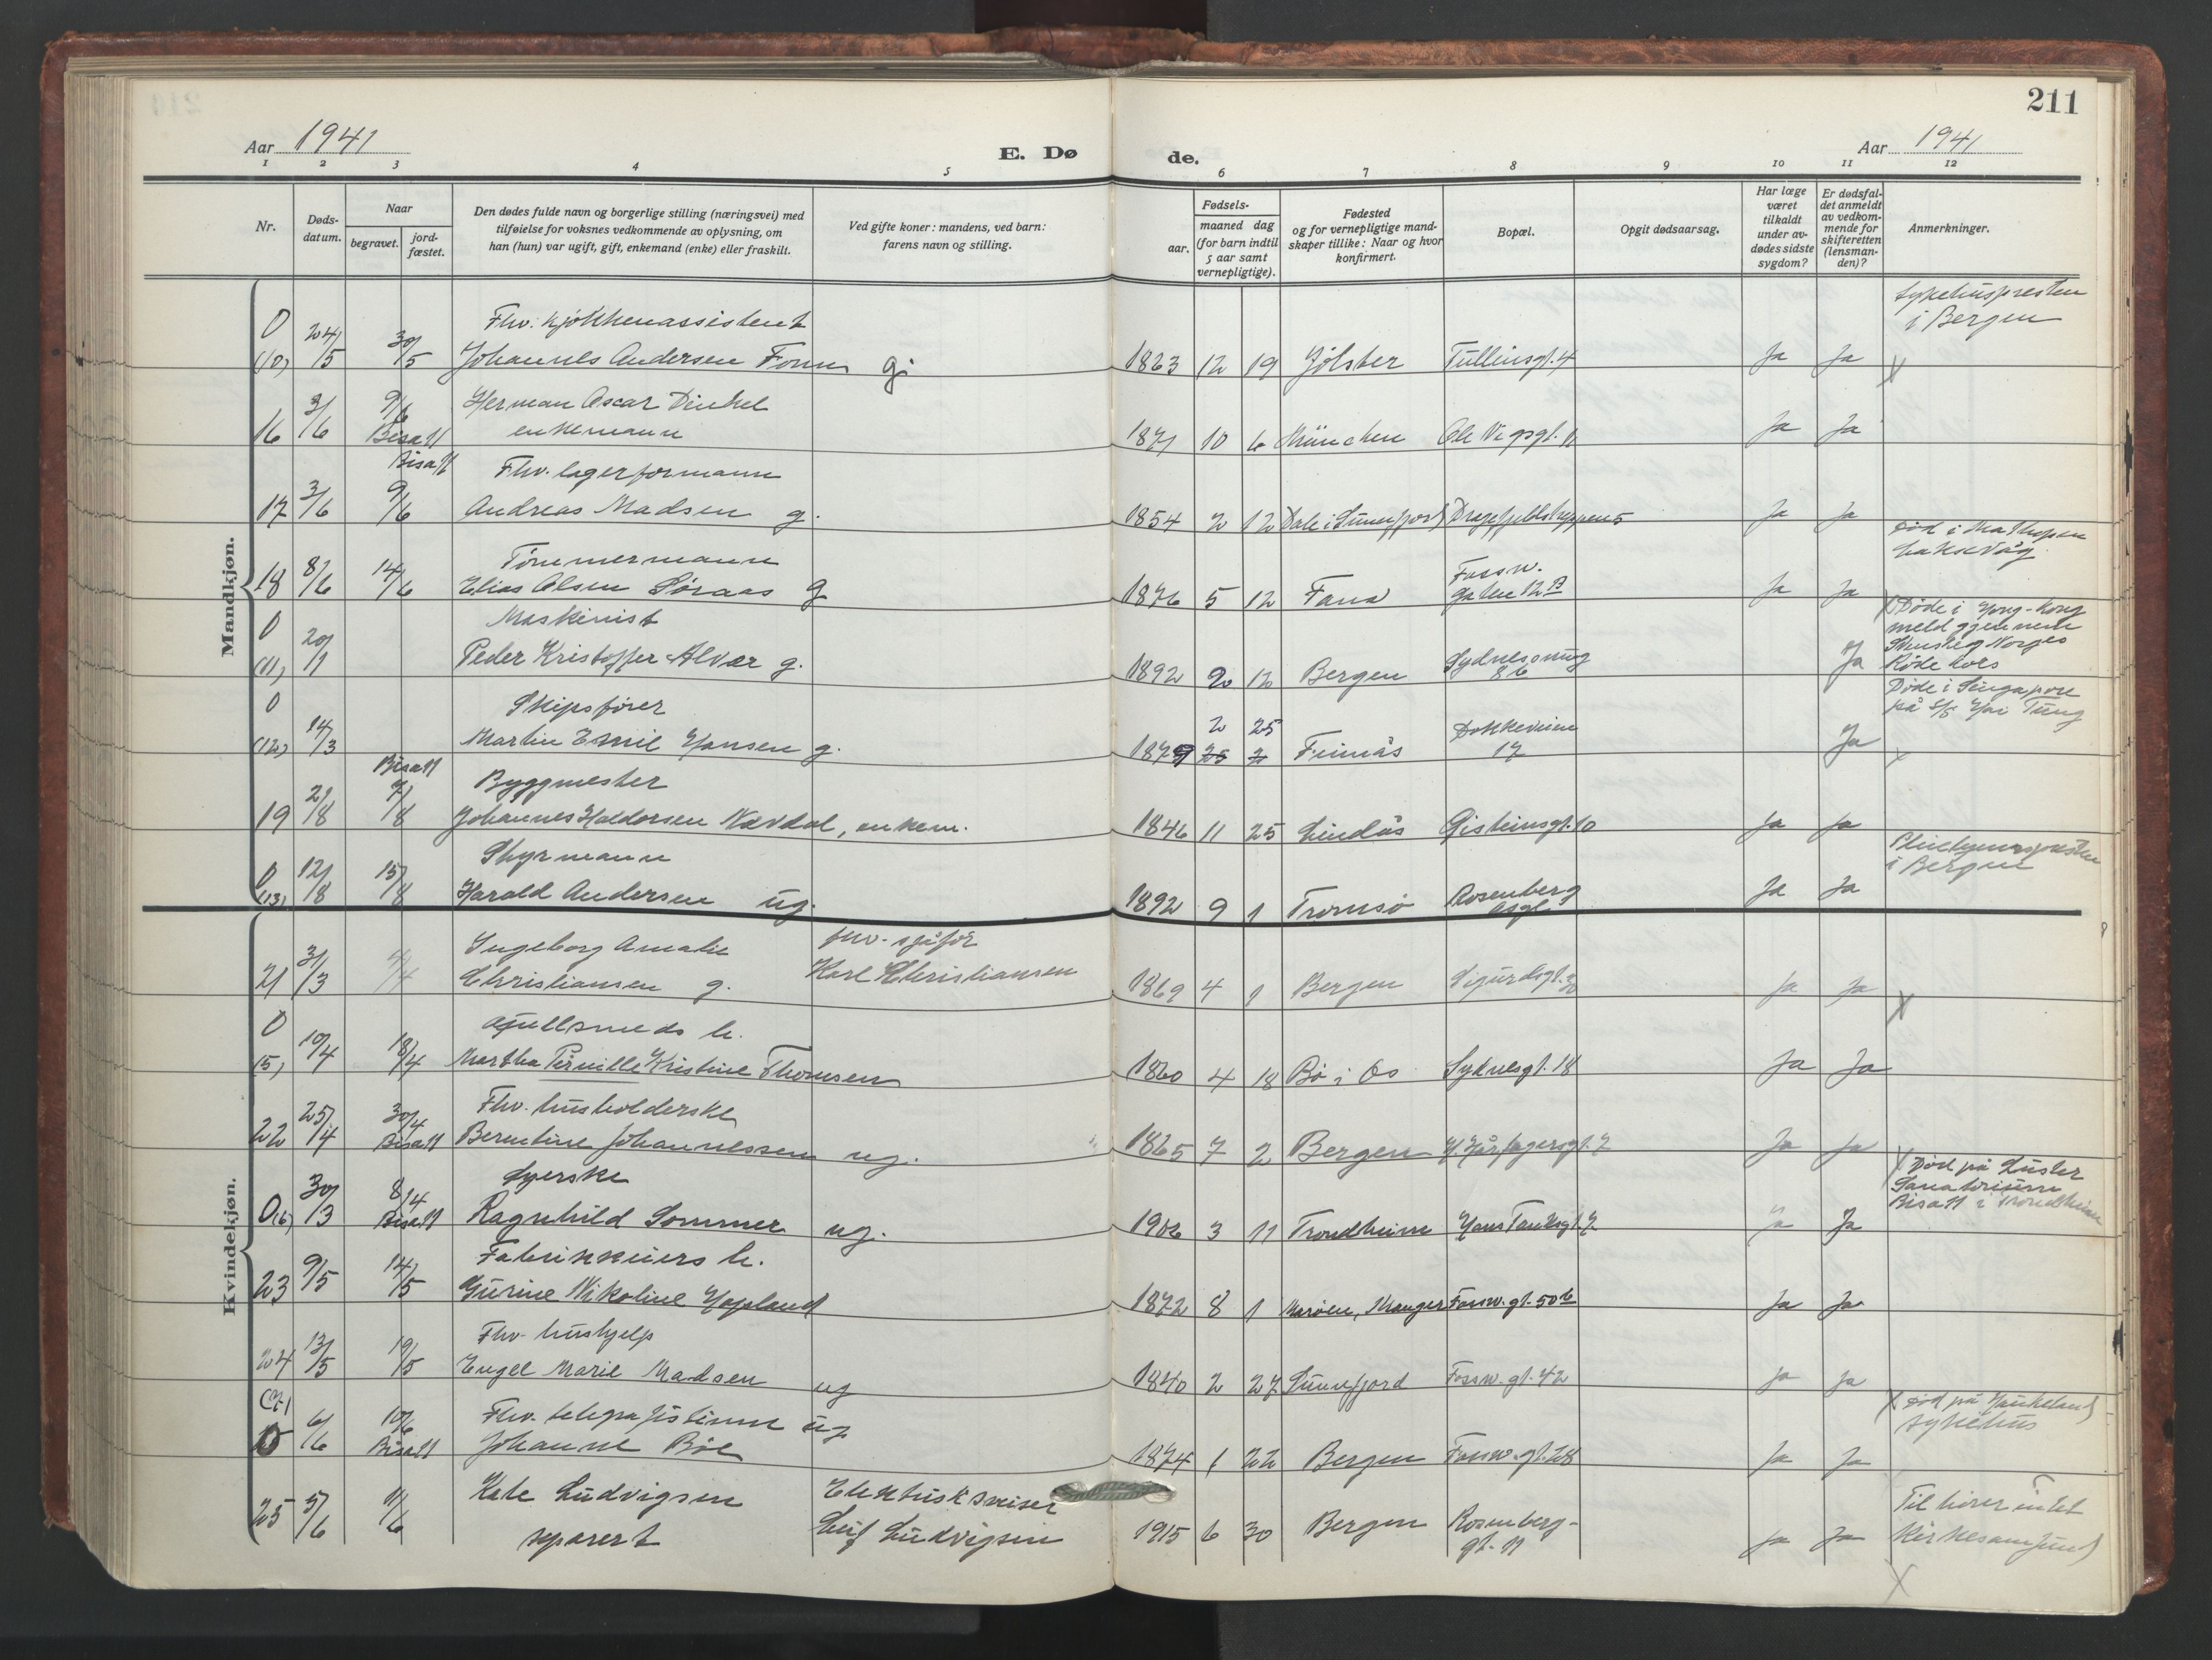 211
Aar 1941
E. Dø de.
Aar 1941
1 2 3 4 5 6 7 8 9 10 11 12
Nr.
Døds-
datum.
Naar
begravet.
jord-
fæstet.
Den dødes fulde navn og borgerlige stilling (næringsvei) med
tilføielse for voksnes vedkommende av oplysning, om
han (hun) var ugift, gift, enkemand (enke) eller fraskilt.
Ved gifte koner: mandens, ved barn:
farens navn og stilling.
Fødsels-
aar.
maaned dag
(for barn indtil
5 aar samt
vernepligtige).
Fødested
og for vernepligtige mand-
skaper tillike: Naar og hvor
konfirmert.
Bopæl.
Opgit dødsaarsag.
Har læge
været
tilkaldt
under av-
dødes sidste
sygdom?
Er dødsfal-
det anmeldt
av vedkom-
mende for
skifteretten
(lensman-
den)?
Anmerkninger.
Mandkjøn.
0 Fhv. kjøkkenassistent Sykehuspresten
i Bergen
(10) 24/5 30/5 Johannes Andersen g. 1863 12 19 Jølster Tullinsgt. 4 Ja Ja X
9/6 Herman Oscar Dinkel
16 3/6 Bisatt enkemann 1871 10 6 München Ole Vigsgt. 11 Ja Ja
Bisatt Fhv. lagerformann
17 3/6 9/6 Andreas Madsen g. 1854 2 12 Dale i Sunnfjord Ja Ja
Tømmermann Fossw. Død i
Laksevåg.
18 8/6 14/6 Elias Olsen Søraas g 1876 5 12 Fana gaten 12 B Ja Ja
0 Maskinist X Døde i Hong-Kong
meld gjennem
(11) 20/1 Peder Kristoffer Alvær g. 1892 2 12 Bergen Sydnessmug
86 Ja Norges
Røde kors
0 Skipsfører Døde i Singapore
på S/S Hai Tung
2 25 Dokkeveien
(12) 14/3 Martin Emil Hansen g. 187 25 2 17 Ja X
Bisatt Byggmester
19 2/8 7/8 Johannes Haldorsen Nævdal, enkem. 1846 11 25 Lindås Gisteinsgt. 10 Ja Ja
0 Styrmann
i Bergen
(13) 12/8 15/8 Harald Andersen ug. 1892 9 1 Tromsø Rosenberg
gt. Ja Ja
Kvindekjøn.
Ingeborg Amalie fhv. sjåfør
21 31/3 Christiansen g. Karl Christiansen 1869 4 1 Bergen Sigurdsgt. Ja Ja X
0 Gullsmeds h.
(5) 10/4 18/4 Martha Pernille Kristine Thomsen 1860 4 18 Bø i Os Sydnesgt. 18 Ja Ja
30/4 Fhv. husholderske
22 25/4 Bisatt Berntine Johannessen ug. 1865 7 2 Bergen H. Hårfagersgt. 7 Ja Ja
8/4 Syerske X Død på Luster
Sanatorium
Bisatt i Trondheim
0(6) 30/3 Bisatt Ragnhild Sommer ug. 1906 3 11 Trondheim Hans Tanksgt. 7 Ja Ja
Fabrikkeiers h.
23 9/5 14/5 Gurine Nikoline Hopland 1872 8 1 Marøen, Manger Fossw. gt. 50 b Ja Ja
Fhv. hushjelp
24 13/5 19/5 Engel Marie Madsen ug 1840 2 27 Sunnfjord Fossw. gt. 42 Ja Ja
(7) 10/6 Fhv. telegrafistinne ug X Død på Haukeland
sykehus
0 6/6 Bisatt Johanne Bøe 1874 1 22 Bergen Fossw. gt. 28 Ja Ja
Kate Ludvigsen Elektrisk sveiser Tilhører intet
25 5/6 11/6 separert Leif Ludvigsen 1915 6 30 Bergen Rosenberg-
gt. 11 Ja Ja kirkesamfund
X